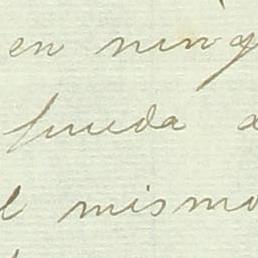 en ning
pueda a
el mismo